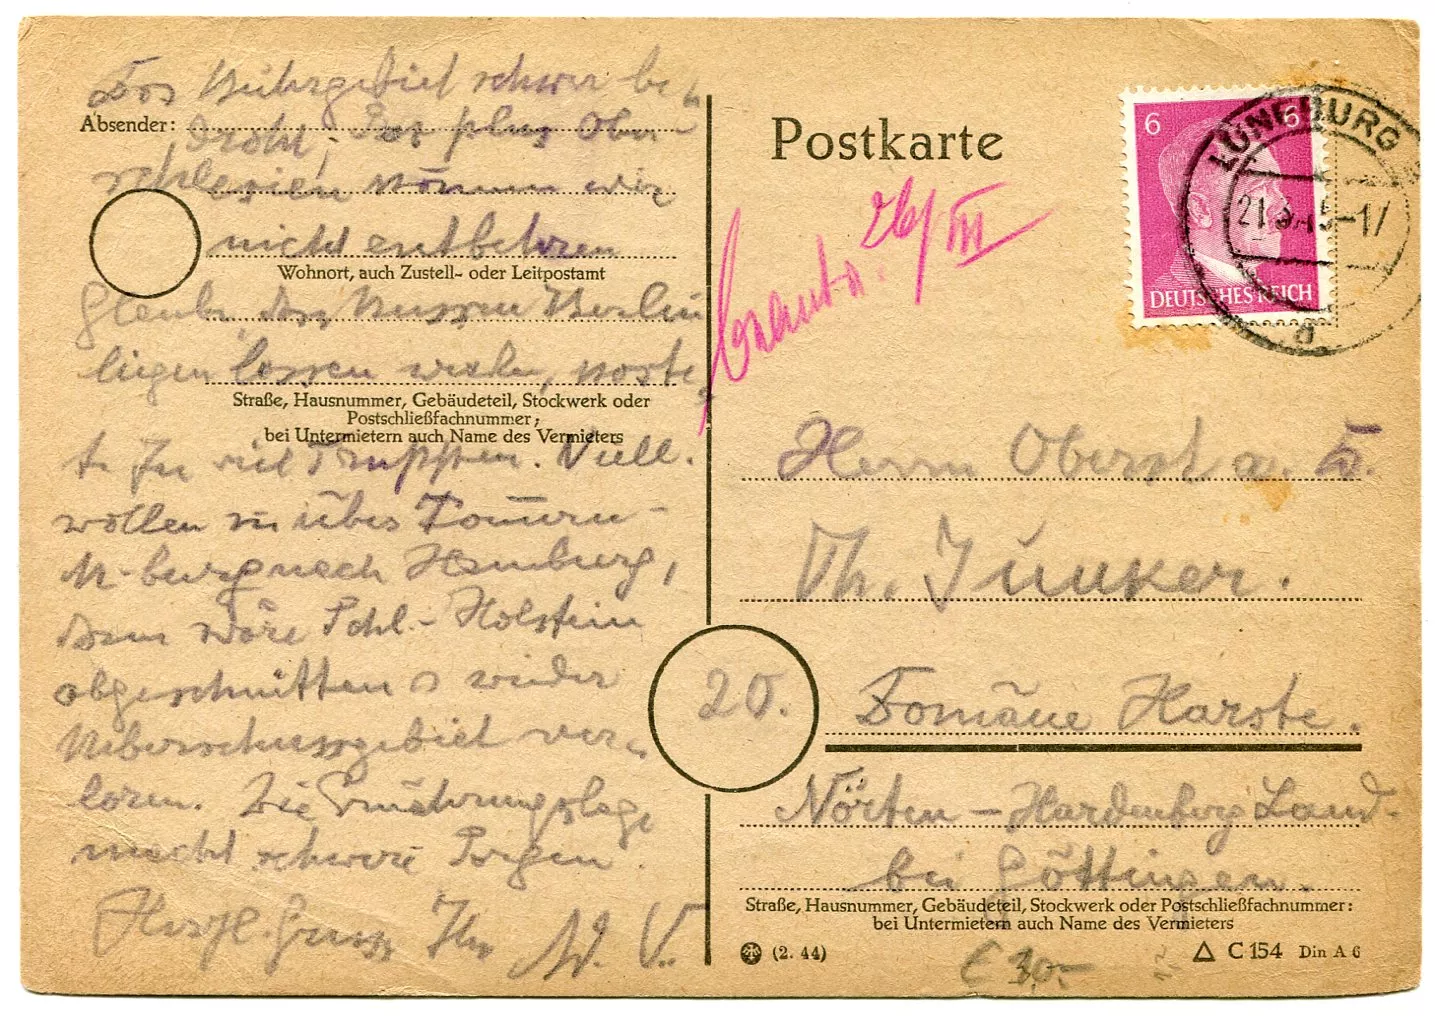 Das Ruhrgebiet schwer be-
Absender:
droht; das plus Ober-
schlesien können wir
nicht entbehren
Wohnort, auch Zustell- oder Leitpostamt
Glaube, dass Russen Berlin
liegen lassen werden, koste-
Straße, Hausnummer, Gebäudeteil, Stockwerk oder
Postschließfachnummer;
bei Untermietern auch Name des Vermieters
te zu viel Truppen. Viell.
wollen sie über
M-burg nach Hamburg,
dann wäre Schl.-Holstein
abgeschnitten wieder
Ueberschussgebiet ver-
loren. Die Ernährungslage
macht schwere Sorgen.
Herzl. Gruss Ihr W. V.
Postkarte
6 6
DEUTSCHES REICH
LÜNEBURG
21.3.45-17
a
26/III
Herrn Oberst a. D.
Th. Junker.
20. Domäne Harste.
Nörten-Hardenberg Land-
bei Göttingen.
Straße, Hausnummer, Gebäudeteil, Stockwerk oder Postschließfachnummer;
bei Untermietern auch Name des Vermieters
(2. 44)
C 154 Din A 6
€ 30.-